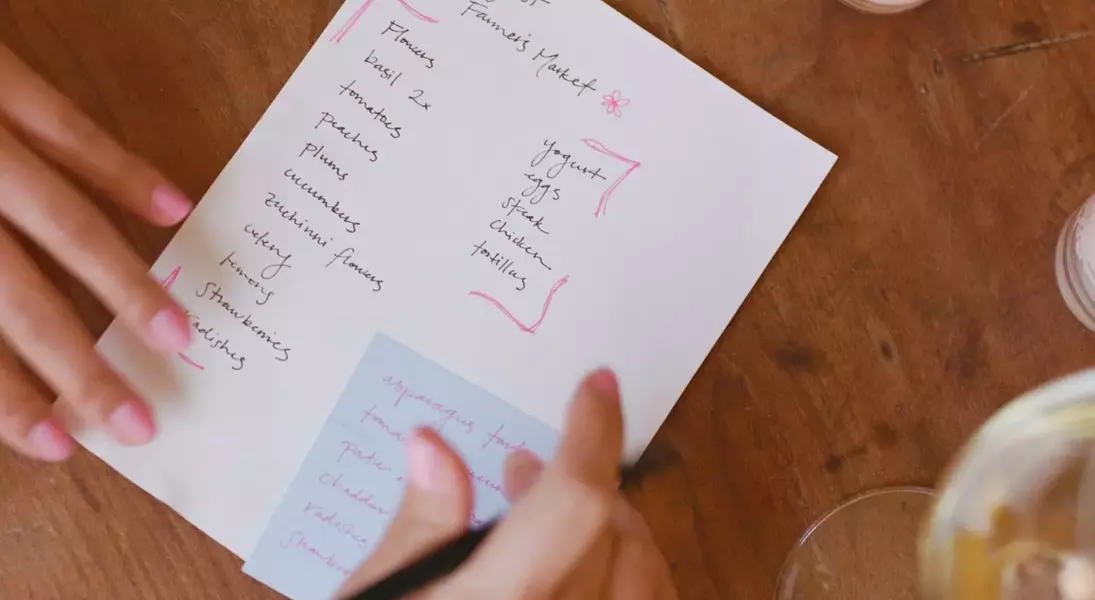 Farmer's Market
Flowers
basil 2x
tomatoes
peaches
plums
cucumbers
zuchinni flowers
celery
lemons
Strawberries
radishes
yogurt
eggs
steak
chicken
tortillas
asparagus
cheddar
radishes